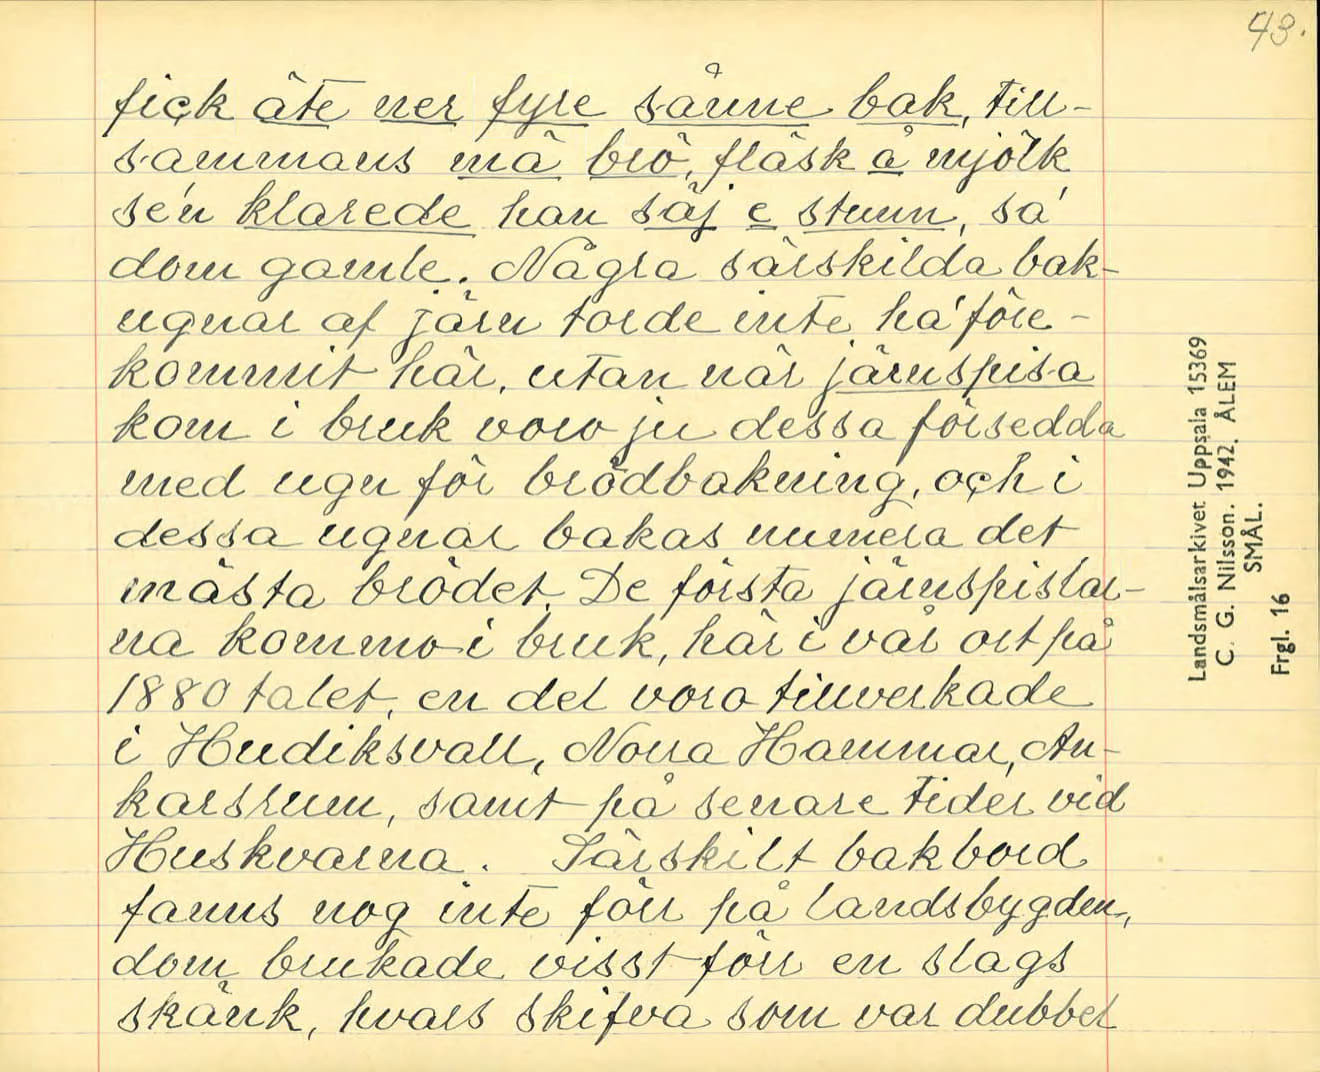 43.
fick äte ner fyre sånne bak, till-
sammans mä brö, fläsk å mjölk
se'n klarede han säj e stunn, sa'
dom gamle. Några särskilda bak-
ugnar af järn torde inte ha' före-
kommit här, utan när järnspisa
kom i bruk voro ju dessa försedda
med ugn för brödbakning, och i
dessa ugnar bakas numera det
mästa brödet. De första järnspislar-
na kommo i bruk, här i vår ort på
1880 talet, en del voro tillverkade
i Hudiksvall, Norra Hammar, An-
karsrum, samt på senare tider vid
Huskvarna. Särskilt bakbord
fanns nog inte förr på landsbygden,
dom brukade visst förr en slags
skänk, hvars skifva som var dubbel
Landsmålsarkivet Uppsala 15369
C. G. Nilsson. 1942. ÅLEM
SMÅL.
Frgl. 16